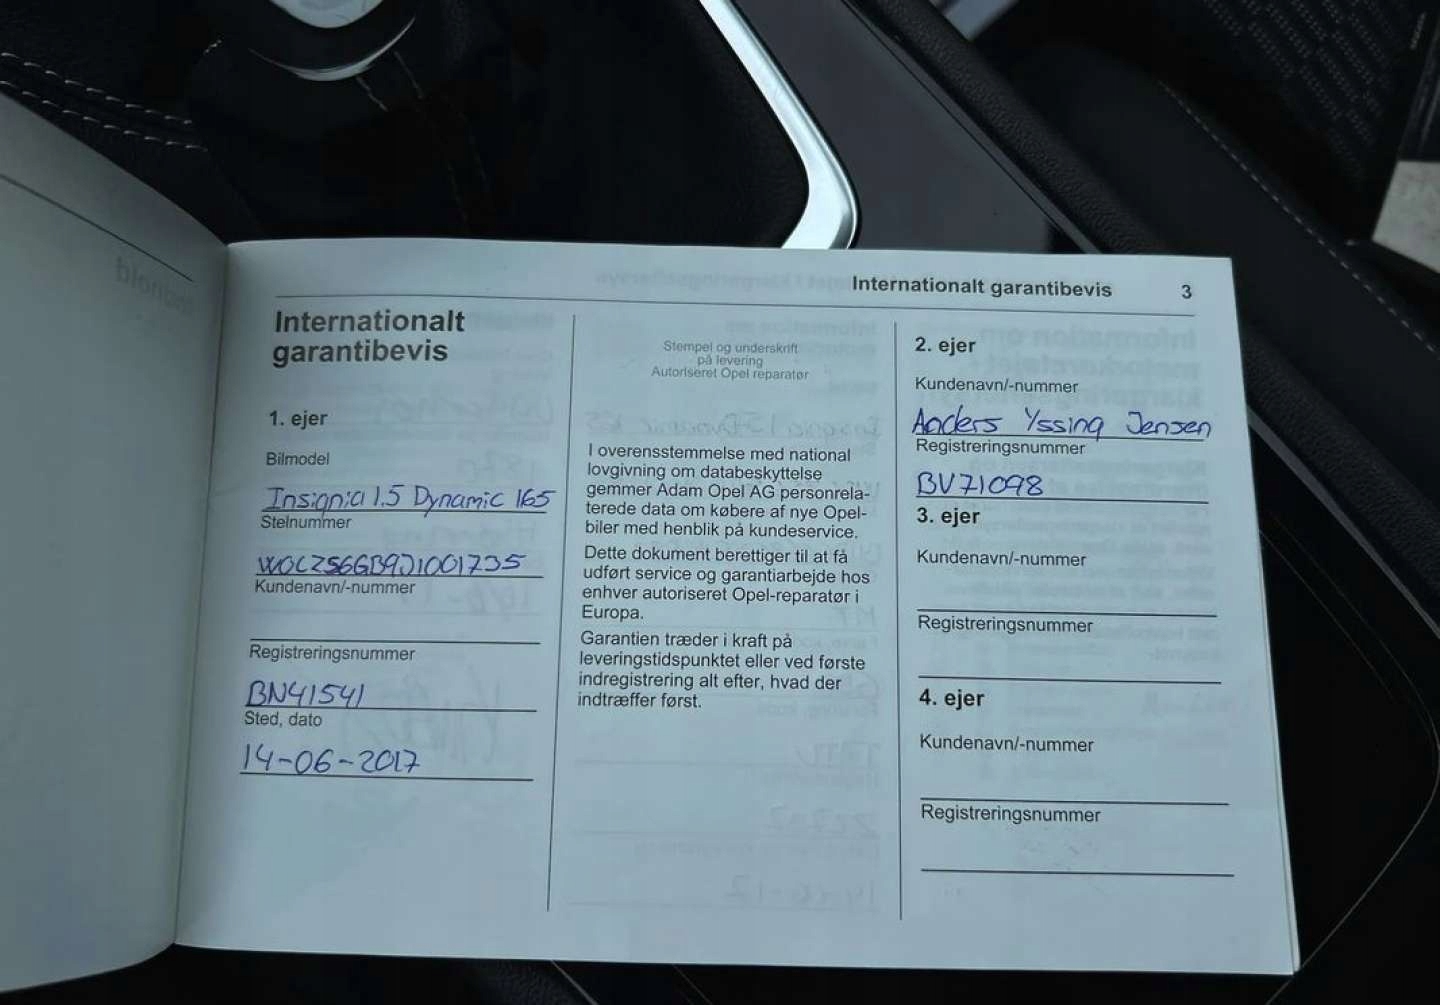 Internationalt garantibevis 3
Internationalt
garantibevis
1. ejer
Bilmodel
Insignia 1.5 Dynamic 165
Stelnummer
W0LZS6GB9J1001735
Kundenavn/-nummer
Registreringsnummer
BN41541
Sted, dato
14-06-2017
Stempel og underskrift
på levering
Autoriseret Opel reparatør
I overensstemmelse med national
lovgivning om databeskyttelse
gemmer Adam Opel AG personrela-
terede data om købere af nye Opel-
biler med henblik på kundeservice.
Dette dokument berettiger til at få
udført service og garantiarbejde hos
enhver autoriseret Opel-reparatør i
Europa.
Garantien træder i kraft på
leveringstidspunktet eller ved første
indregistrering alt efter, hvad der
indtræffer først.
2. ejer
Kundenavn/-nummer
Anders Yssing Jensen
Registreringsnummer
BV71098
3. ejer
Kundenavn/-nummer
Registreringsnummer
4. ejer
Kundenavn/-nummer
Registreringsnummer